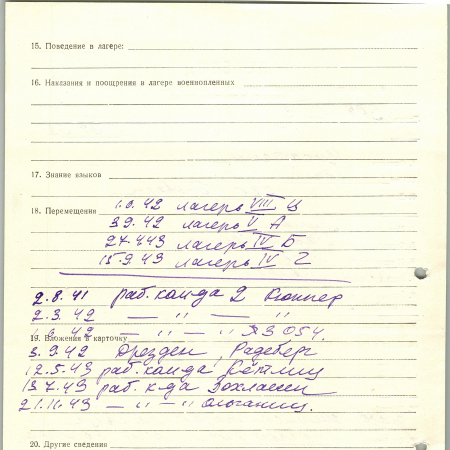 15. Поведение в лагере:
16. Наказания и поощрения в лагере военнопленных
17. Знание языков
1.6.42 лагерь VIII Ц
18. Перемещения
3.9.42 лагерь V А
27.4.43 лагерь IV Б
15.9.43 лагерь IV Г
2.8.41 раб. команда 2
2.3.42 — " — " —
1.6.42 — " — "
19. Вложения в карточку
3.9.42 Дрезден, Радеберг
12.5.43 раб. команда
13.7.43 раб. к-да
21.11.43 — " — "
20. Другие сведения